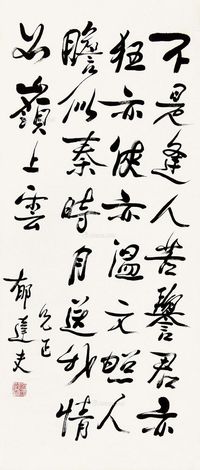 不是逢人苦譽君亦
狂亦俠亦溫文照人
膽似秦時月送我情
如嶺上雲
兄正
郁達夫